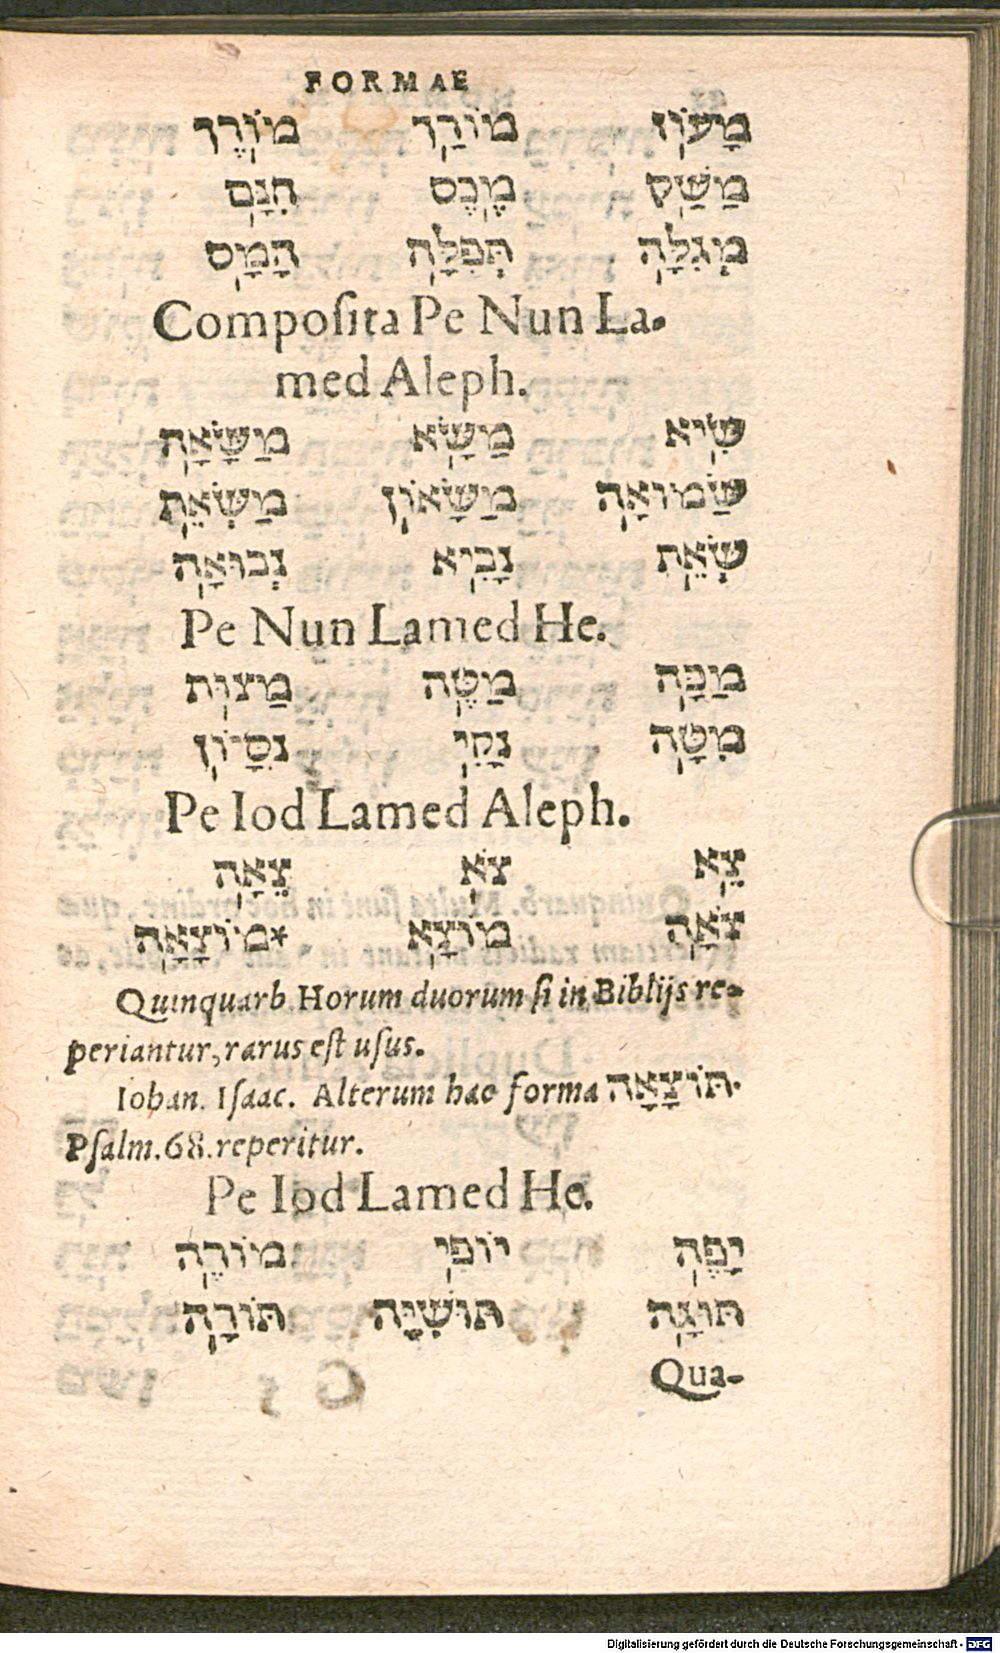 FORMAE
מָעֹוז מֹורַך מֹורֶך
מַשַׁק מֶכֶס חִנָּם
מְגִלָּה תְּפִלָּה הָמָס
Compoſita Pe Nun La-
med Aleph.
שִׂיא מַשָּׂא מַשָּׂאָה
שַׂמוּאָה מַשָּׂאֹון מַשְׂאֵת
שְׂאֵת נָבִיא נְבוּאָה
Pe Nun Lamed He.
מַכָּה מַטֶּה מַצּוּת
מִטָּה נָקִי נִסָּיֹון
Pe Iod Lamed Aleph.
צֵא צֹא צֵאָה
צֹאָה מֹוצָא *מֹוצָאָה
Quinquarb. Horum duorum ſi in Biblijs re-
periantur, rarus eſt uſus.
Iohan. Iſaac. Alterum hac forma תֹּוצָאָה.
Pſalm. 68. reperitur.
Pe Iod Lamed He.
יָפֶה יֹופִי מֹורֶה
תּוּגָה תּוּשִׁיָּה תֹּורָה
Qua-
Digitalisierung gefördert durch die Deutsche Forschungsgemeinschaft - DFG